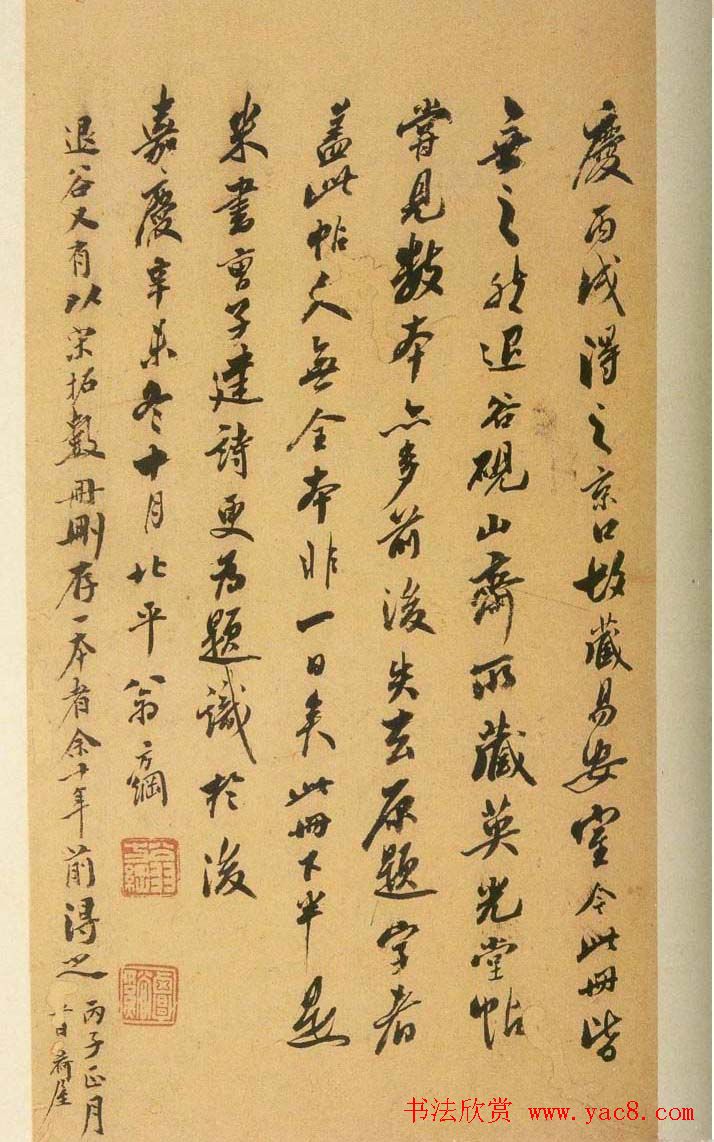 慶丙戌得之京口故藏易安室今此冊皆
無之然退谷硯山齋所藏英光堂帖
嘗見數本亦多前後失去原題字者
蓋此帖久無全本非一日矣此冊下半是
米書曹子建詩更為題識於後
嘉慶辛未冬十月北平翁方綱
退谷又有以宋拓數冊刪存一本者余十年前得之
丙子正月
廿日荷屋
书法欣赏 www.yac8.com